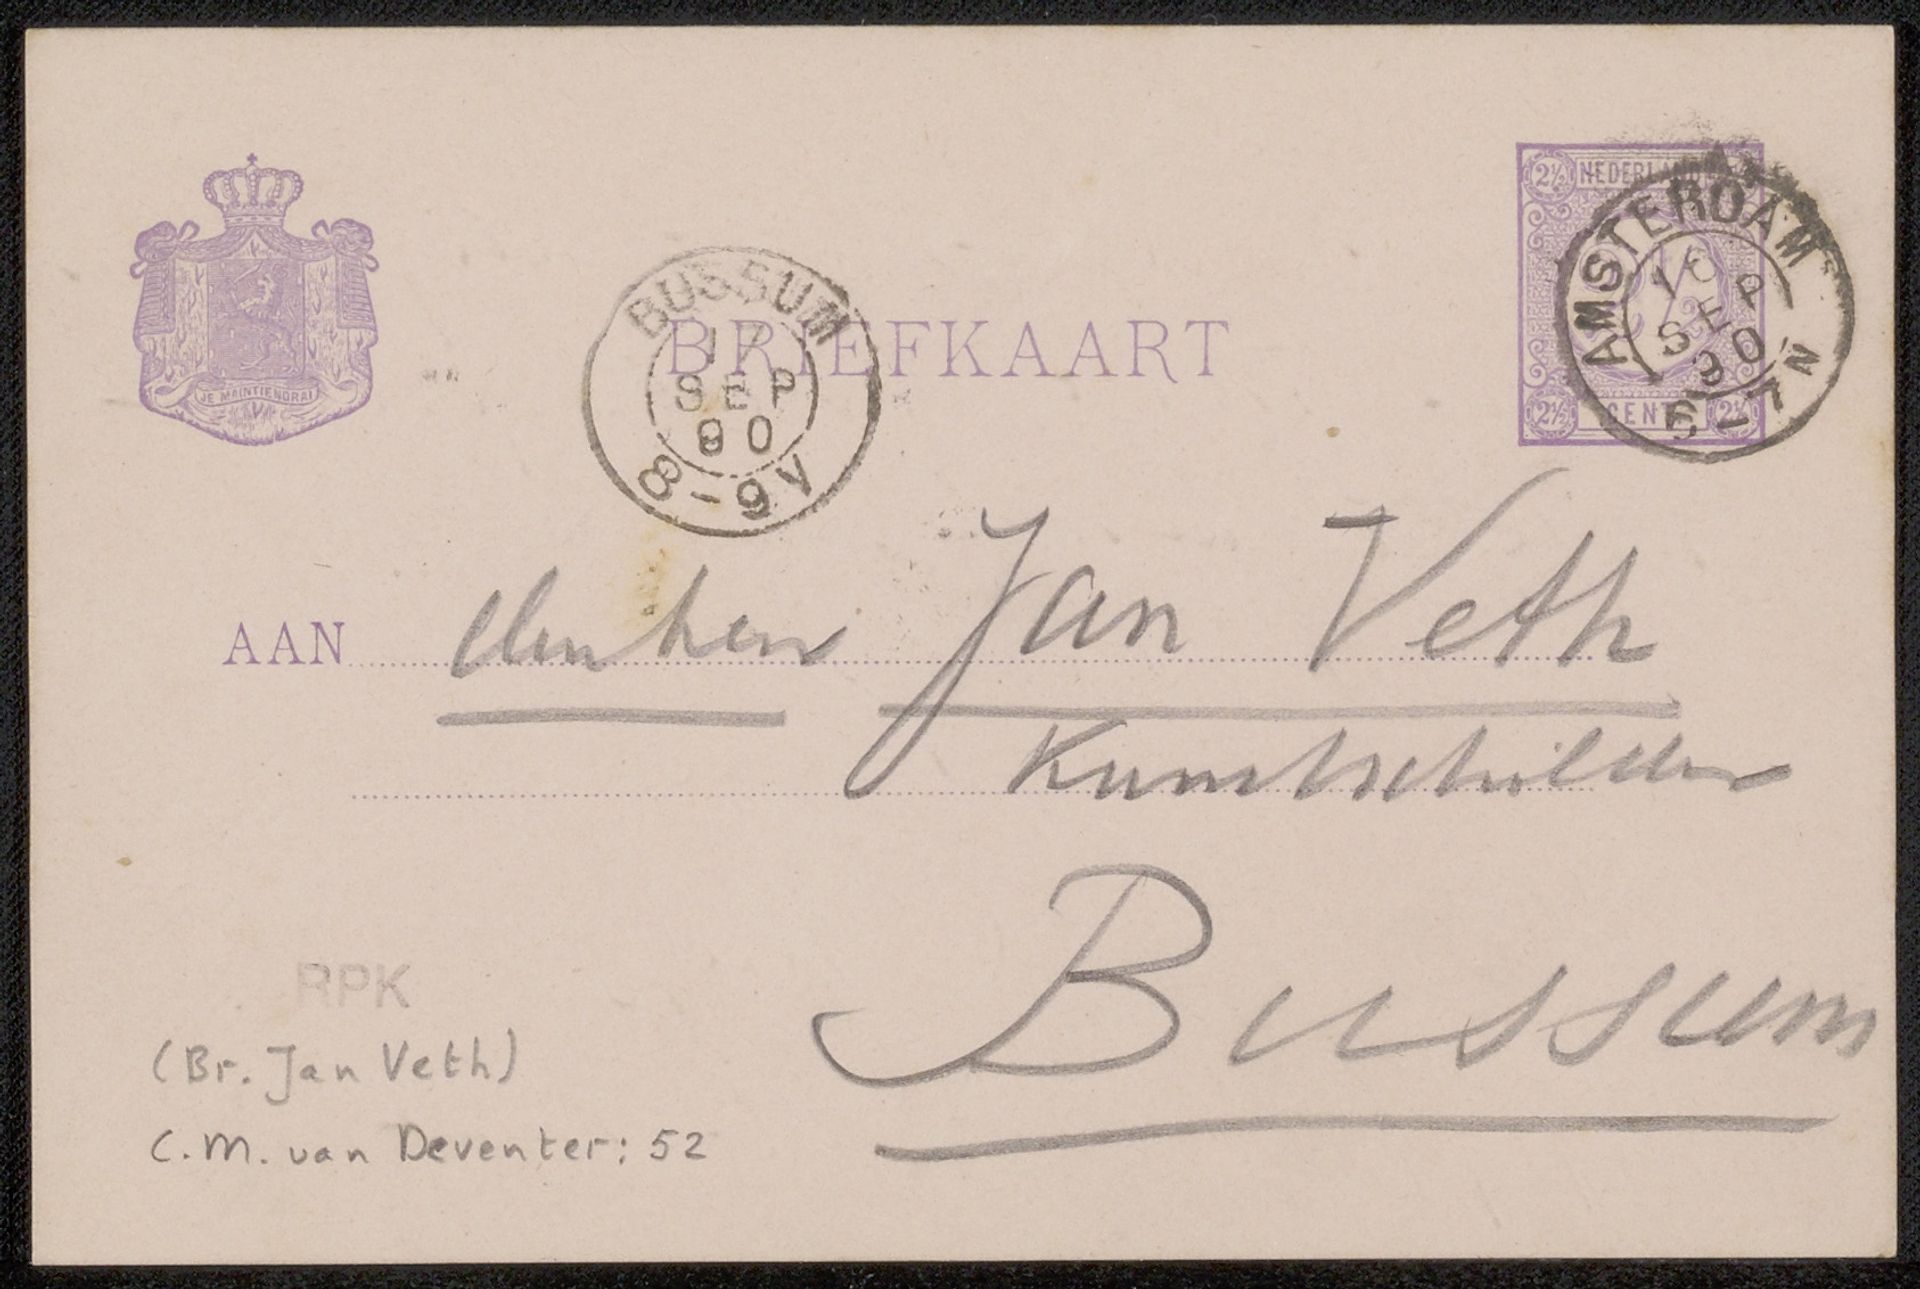 BRIEFKAART
JE MAINTIENDRAI
BUSSUM
17
SEP
90
8-9V
2½ NEDERLAND
2½ CENT 2½
AMSTERDAM
16
SEP
90
6-7N
AAN den heer Jan Veth
Kunstschilder
Bussum
RPK
(Br. Jan Veth)
C.M. van Deventer: 52